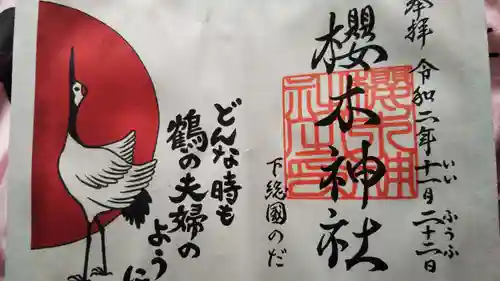 奉拝
令和二年十一日二十二日
いい
ふうふ
櫻木神社
下総國のだ
どんな時も
鶴の夫婦の
ように